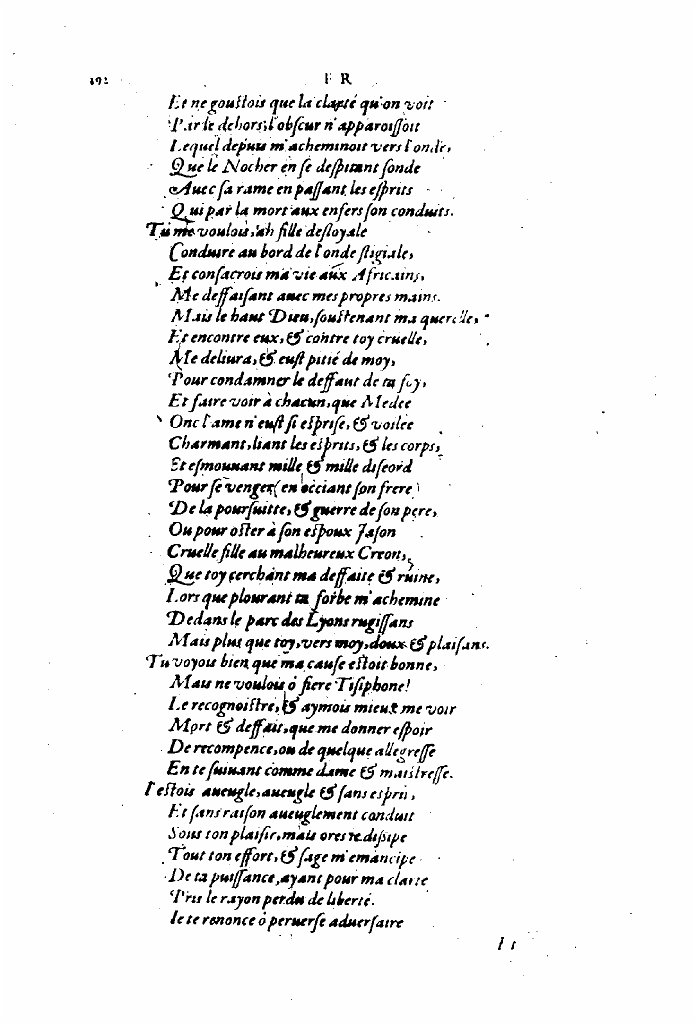 192
F R
Et ne goustois que la clarté qu'on voit
Par le dehors, l'obscur n'apparoissoit
Lequel depuis m'acheminoit vers l'onde,
Que le Nocher en se despitant sonde
Auec sa rame en passant les esprits
Qui par la mort aux enfers son conduits.
Tu me voulois, ah fille desloyale
Conduire au bord de l'onde stigiale,
Et consacrois ma vie aux Africains,
Me deffaisant auec mes propres mains.
Mais le haut Dieu, soustenant ma querelle,
Et encontre eux, & contre toy cruelle,
Me deliura, & eust pitié de moy,
Pour condamner le deffaut de ta foy,
Et faire voir à chacun, que Medee
Onc l'ame n'eust si esprise, & voilee
Charmant, liant les esprits, & les corps,
Et esmouuant mille & mille discord
Pour se venger (en occiant son frere)
De la poursuitte, & guerre de son pere,
Ou pour oster à son espoux Jason
Cruelle fille au malheureux Creon,
Que toy cerchant ma deffaite & ruine,
Lors que plourant ta forbe m'achemine
Dedans le parc des Lyons rugissans
Mais plus que toy, vers moy, doux & plaisans.
Tu voyois bien que ma cause estoit bonne,
Mais ne voulois ô fiere Tisiphone!
Le recognoistre, & aymois mieux me voir
Mort & deffait, que me donner espoir
De recompence, ou de quelque allegresse
En te suiuant comme dame & maistresse.
I'estois aueugle, aueugle & sans esprit,
Et sans raison aueuglement conduit
Sous ton plaisir, mais ores te dissipe
Tout ton effort, & sage m'emancipe
De ta puissance, ayant pour ma clarte
Pris le rayon perdu de liberté.
Ie te renonce ô peruerse aduersaire